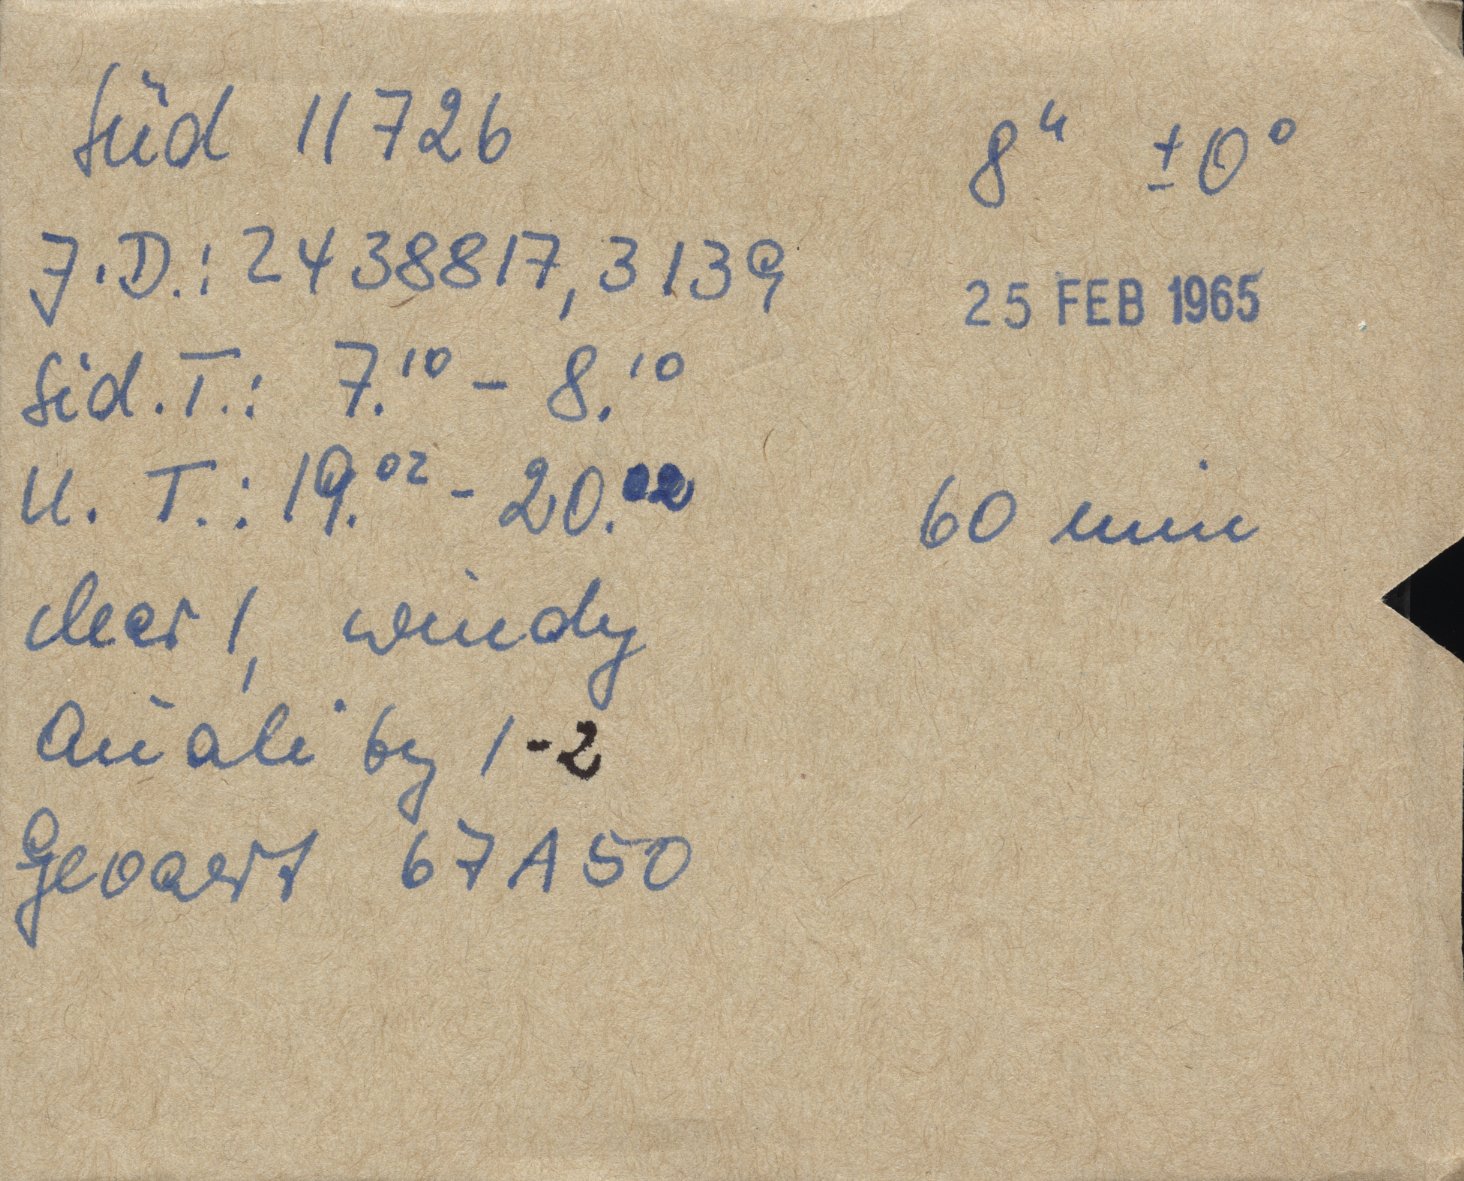 Süd 11726
8ʰ ±0°
J.D.: 2438817,3139
25 FEB 1965
Sid.T.: 7.¹⁰ - 8.¹⁰
U. T.: 19.⁰² - 20.⁰²
60 min
clear 1, windy
Quality 1-2
Gevaert 67A50